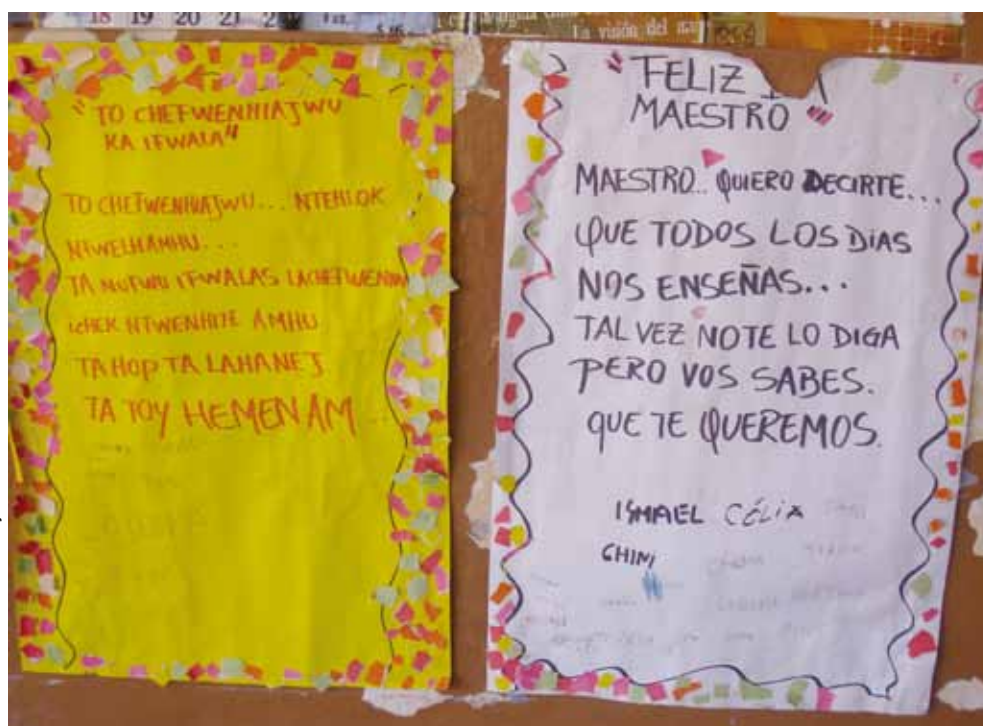 18 19 20 21 2
La visión del
"TO CHEFWENHIAJWU
KA IFWALA"
TO CHEFWENHIAJWU... NTEHLOK
NTWELHAMHU...
TA NUFWU IFWALAS LACHEFWENHA
ICHEK NTWENHITE AMHU
TA HOP TA LAHANEJ
TA TOY HEMEN AM...
"FELIZ
MAESTRO"
MAESTRO.. QUIERO DECIRTE...
QUE TODOS LOS DIAS
NOS ENSEÑAS...
TAL VEZ NO TE LO DIGA
PERO VOS SABES.
QUE TE QUEREMOS.
ISMAEL CÉLIA
CHINI